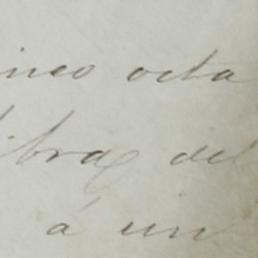 inco octa
libras del
á un